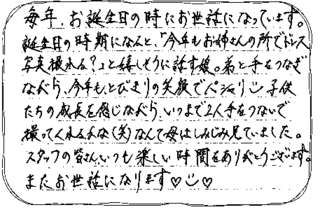 毎年、お誕生日の時にお世話になっています。
誕生日の時期になんと、「今年もお姉さんの所でドレス
写真撮れる?」と嬉しそうに話す娘。弟と手をつなぎ
ながら、今年もとびきりの笑顔でパシャリ 子供
たちの成長を感じながら、いつまで2人手をつないで
撮ってくれるかな(笑)なんて母はしみじみ見ていました。
スタッフの皆さん、いつも楽しい時間をありがとうございます。
またお世話になります♡ ♡